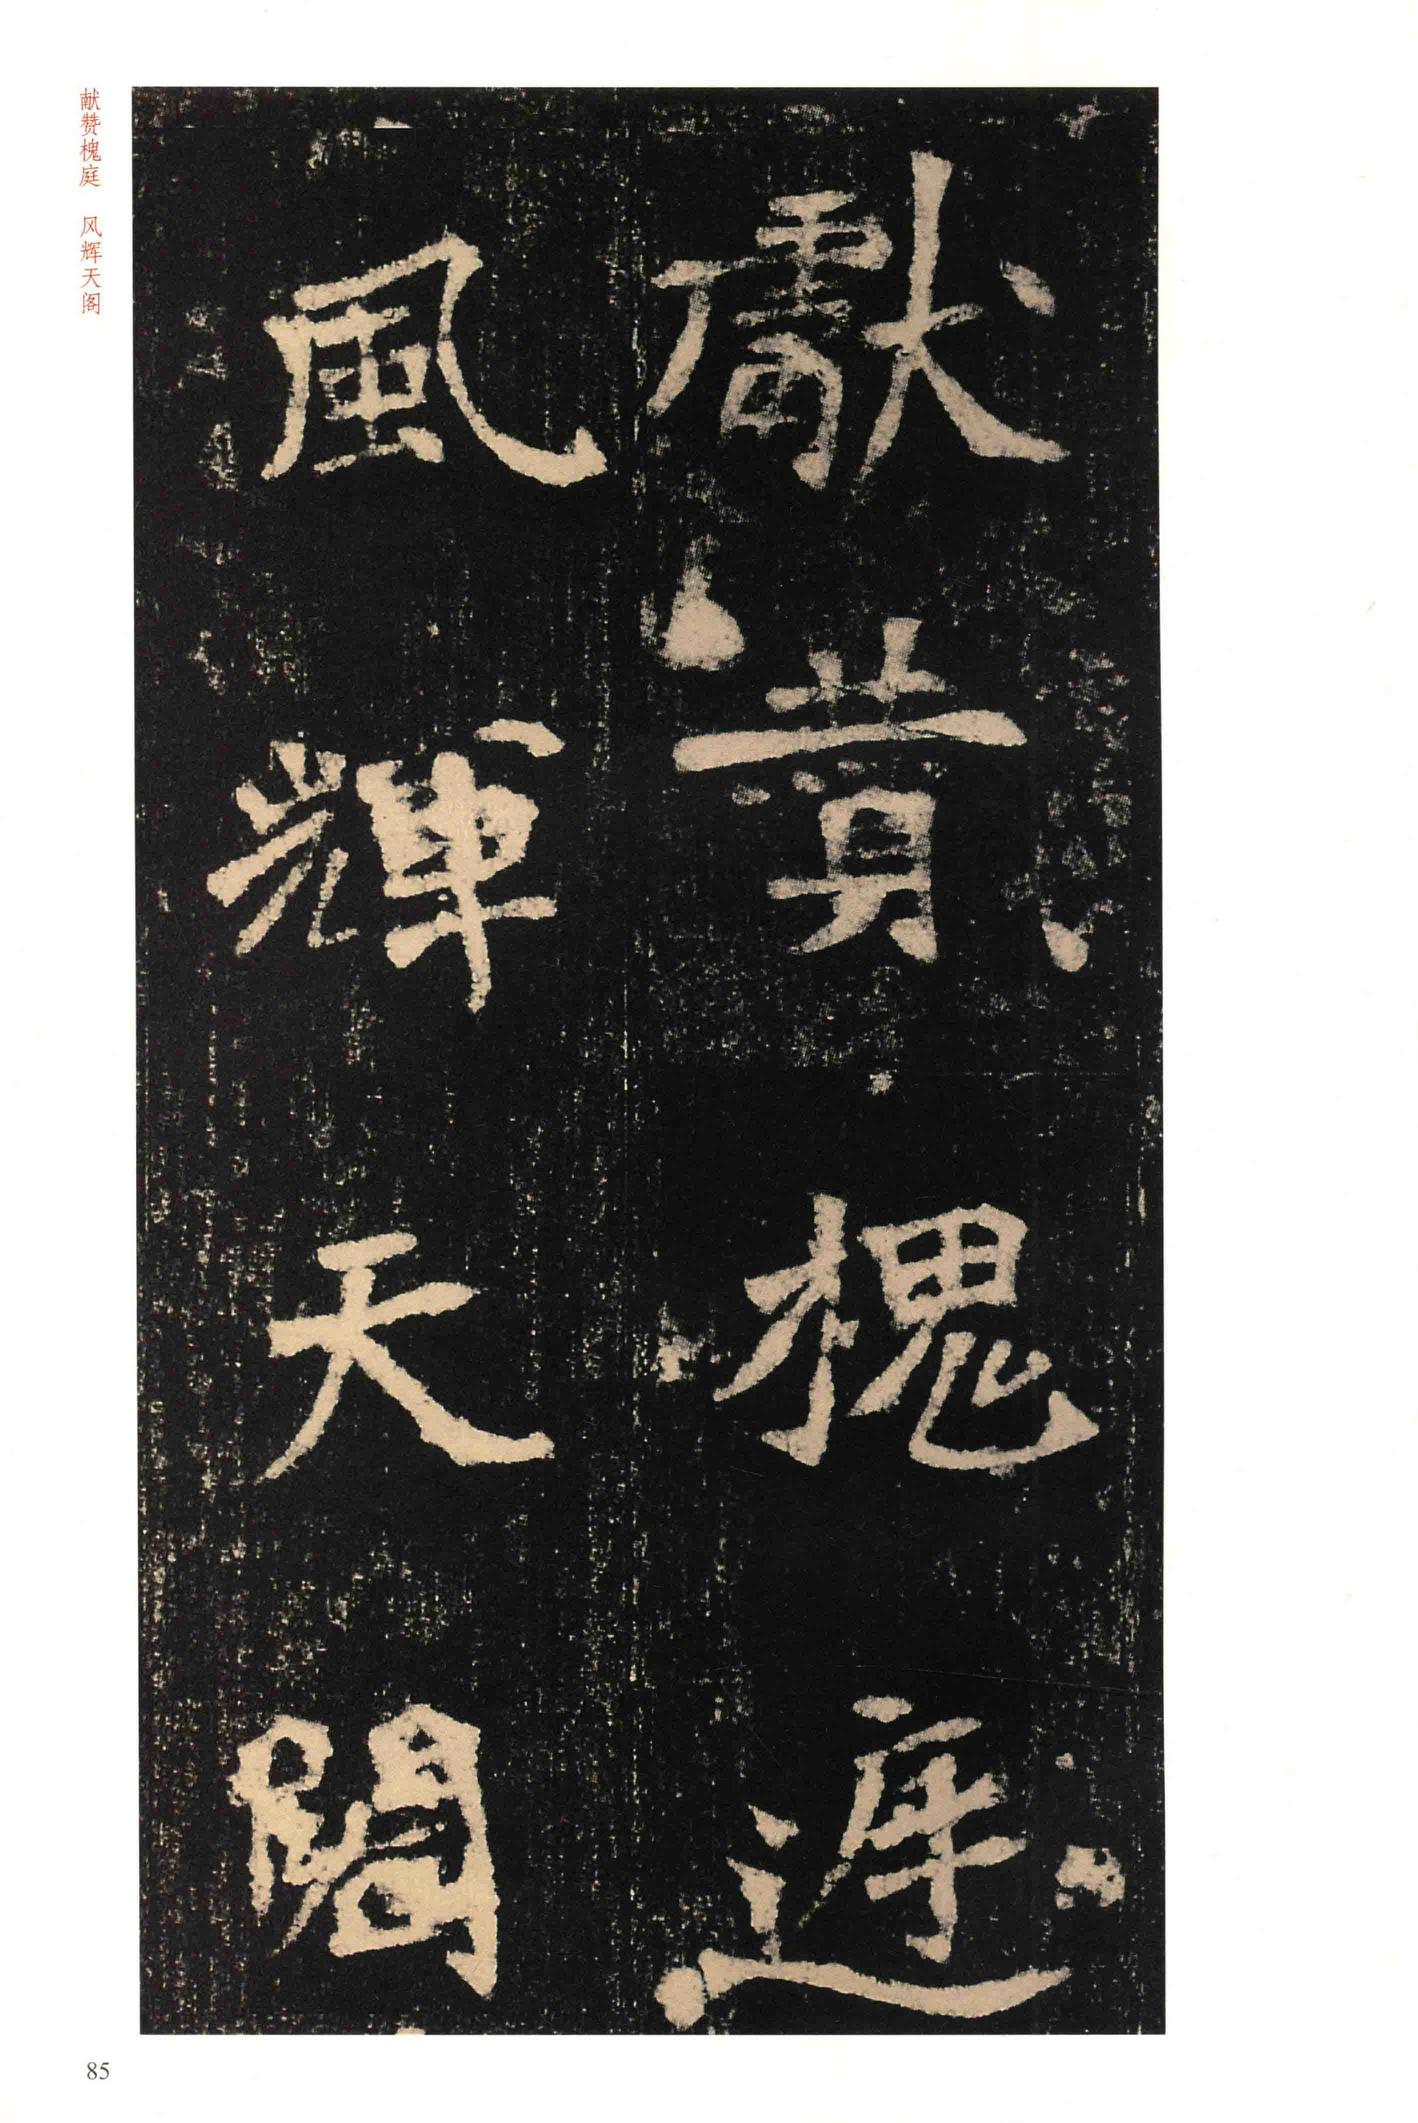 獻贊槐庭
風輝天閣
献赞槐庭 风辉天阁
85